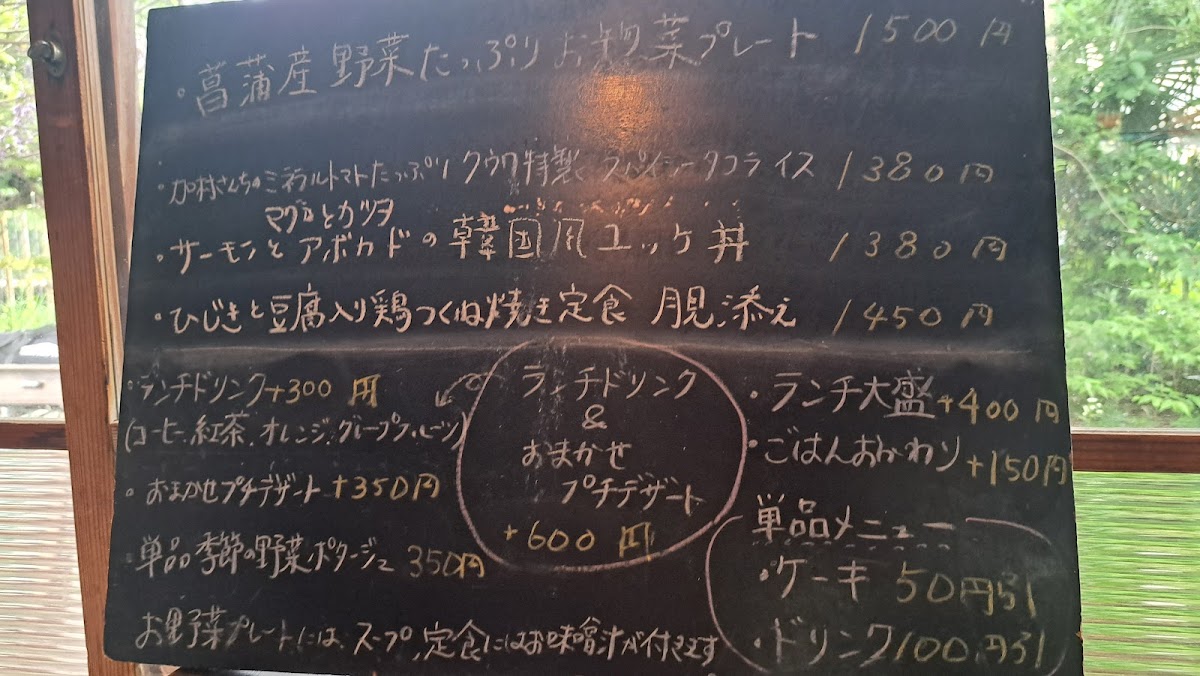 ・菖蒲産野菜たっぷりお惣菜プレート 1500円
・加村さんちのミネラルトマトたっぷり クウワ特製 スパイシータコライス 1380円
マグロとカツオ
・サーモンとアボカドの韓国風ユッケ丼 1380円
・ひじきと豆腐入り鶏つくね焼き定食 月見添え 1450円
・ランチドリンク+300円
(コーヒー、紅茶、オレンジ、グレープフルーツ)
・おまかせプチデザート +350円
・単品 季節の野菜ポタージュ 350円
お野菜プレートには、スープ、定食にはお味噌汁が付きます
ランチドリンク
&
おまかせ
プチデザート
+600円
・ランチ大盛+400円
・ごはんおかわり+150円
単品メニュー
・ケーキ 50円引
・ドリンク100円引